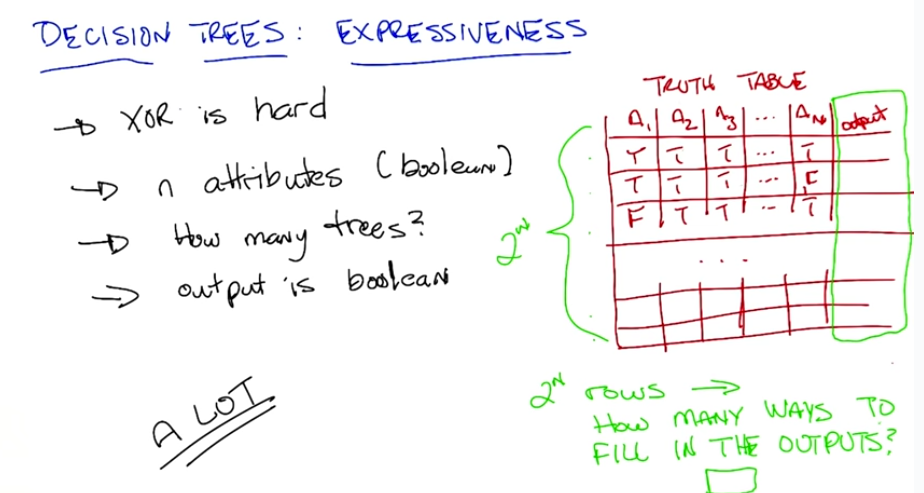 DECISION TREES: EXPRESSIVENESS
→ XOR is hard
→ n attributes (boolean)
→ How many trees?
→ output is boolean
A LOT
TRUTH TABLE
A1 A2 A3 ... AN output
T T T ... T
T T T ... F
F T T ... T
...
2^N
2^N rows →
How MANY WAYS TO
FILL IN THE OUTPUTS?